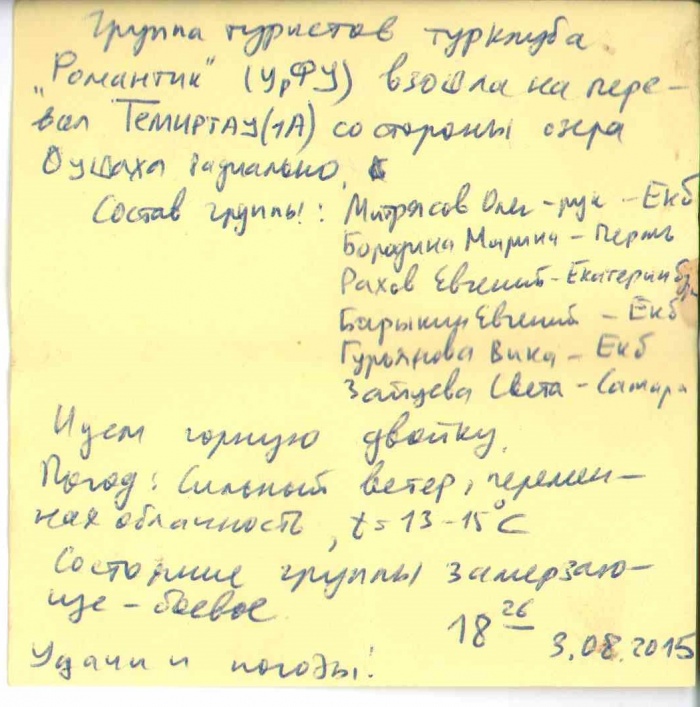 Группа туристов турклуба
"Романтик" (УрФУ) взошла на пере-
вал Темиртау (1А) со стороны озера
Оушаха радиально,
Состав группы: Митрясов Олег - рук - Екб
Бородина Марина - Пермь
Рахов Евгений - Екатеринбу
Барыкин Евгений - Екб
Гурьянова Вика - Екб
Зайцева Света - Самара
Идем горную двойку.
Погод: Сильный ветер, перемен-
ная облачность, t = 13-15°C
Состояние группы замерзаю-
ще - боевое.
18 26 3.08.2015
Удачи и погоды!